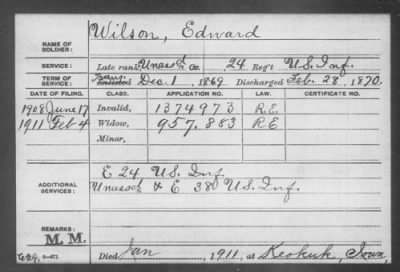 Wilson, Edward
NAME OF SOLDIER:
SERVICE: Late rank, Unassd Co., 24 Reg't U.S. Inf.
TERM OF SERVICE: Enlisted Dec. 1, 1869. Discharged Feb. 28, 1870.
DATE OF FILING. CLASS. APPLICATION NO. LAW. CERTIFICATE NO.
1908 June 17 Invalid, 1374973 R.E.
1911 Feb 4 Widow, 957.883 RE
Minor,
ADDITIONAL SERVICES: E 24 U.S. Inf
Unassd & E 38 U.S. Inf.
REMARKS:
M. M.
Died Jan , 1911, at Keokuk, Iowa